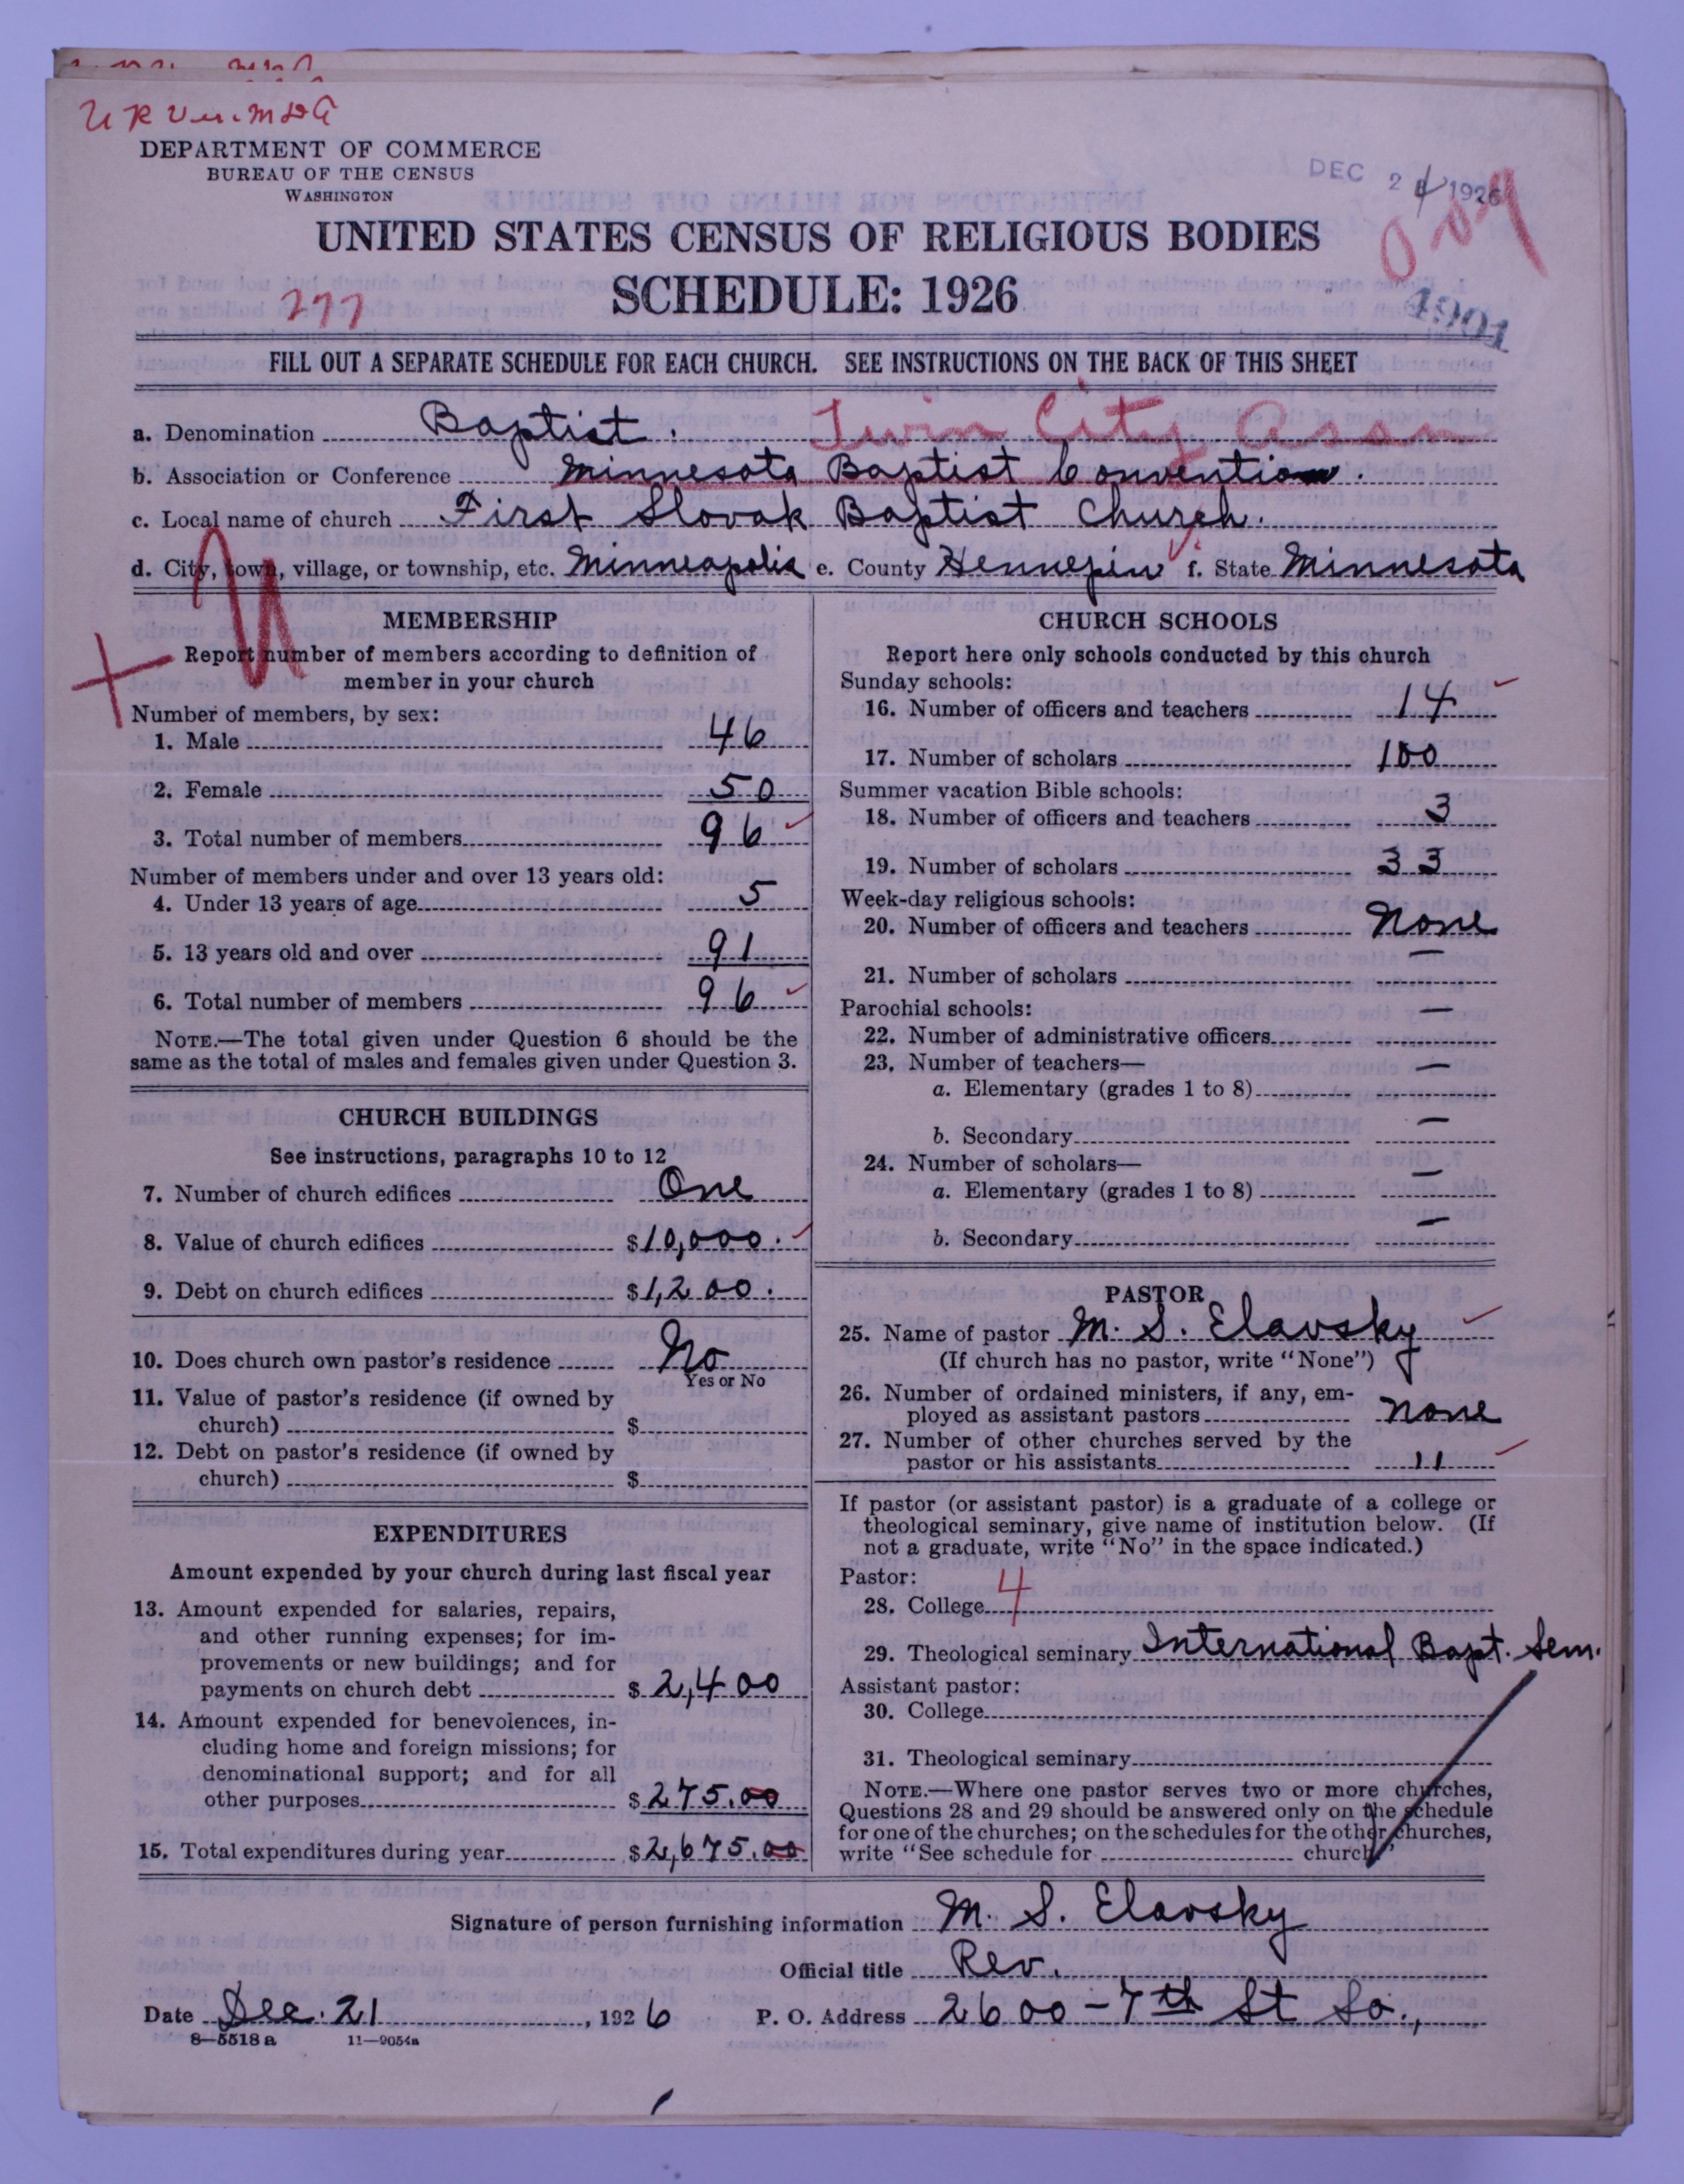 DEPARTMENT OF COMMERCE
BUREAU OF THE CENSUS
WASHINGTON
DEC 24 1926
UNITED STATES CENSUS OF RELIGIOUS BODIES
SCHEDULE: 1926
277
1901
FILL OUT A SEPARATE SCHEDULE FOR EACH CHURCH. SEE INSTRUCTIONS ON THE BACK OF THIS SHEET
a. Denomination Baptist. Twin City Assn
b. Association or Conference Minnesota Baptist Convention.
c. Local name of church First Slovak Baptist Church.
d. City, town, village, or township, etc. Minneapolis e. County Hennepin f. State Minnesota
MEMBERSHIP
Report number of members according to definition of
member in your church
Number of members, by sex:
1. Male 46
2. Female 50
3. Total number of members 96
Number of members under and over 13 years old:
4. Under 13 years of age 5
5. 13 years old and over 91
6. Total number of members 96
NOTE.—The total given under Question 6 should be the
same as the total of males and females given under Question 3.
CHURCH BUILDINGS
See instructions, paragraphs 10 to 12
7. Number of church edifices One
8. Value of church edifices $10,000.
9. Debt on church edifices $1,200.
10. Does church own pastor's residence No
Yes or No
11. Value of pastor's residence (if owned by
church) $
12. Debt on pastor's residence (if owned by
church) $
EXPENDITURES
Amount expended by your church during last fiscal year
13. Amount expended for salaries, repairs,
and other running expenses; for im-
provements or new buildings; and for
payments on church debt $ 2,400
14. Amount expended for benevolences, in-
cluding home and foreign missions; for
denominational support; and for all
other purposes $ 275.00
15. Total expenditures during year $2,675.00
CHURCH SCHOOLS
Report here only schools conducted by this church
Sunday schools:
16. Number of officers and teachers 14
17. Number of scholars 100
Summer vacation Bible schools:
18. Number of officers and teachers 3
19. Number of scholars 33
Week-day religious schools:
20. Number of officers and teachers None
21. Number of scholars —
Parochial schools:
22. Number of administrative officers —
23. Number of teachers—
a. Elementary (grades 1 to 8) —
b. Secondary —
24. Number of scholars—
a. Elementary (grades 1 to 8) —
b. Secondary —
PASTOR
25. Name of pastor M. S. Elavsky
(If church has no pastor, write "None")
26. Number of ordained ministers, if any, em-
ployed as assistant pastors None
27. Number of other churches served by the
pastor or his assistants 11
If pastor (or assistant pastor) is a graduate of a college or
theological seminary, give name of institution below. (If
not a graduate, write "No" in the space indicated.)
Pastor:
28. College 4
29. Theological seminary International Bapt. Sem.
Assistant pastor:
30. College
31. Theological seminary
NOTE.—Where one pastor serves two or more churches,
Questions 28 and 29 should be answered only on the schedule
for one of the churches; on the schedules for the other churches,
write "See schedule for church"
Signature of person furnishing information M. S. Elavsky
Official title Rev.
Date Dec. 21, 1926 P. O. Address 2600-7th St So.,
8—5518a 11—9054a